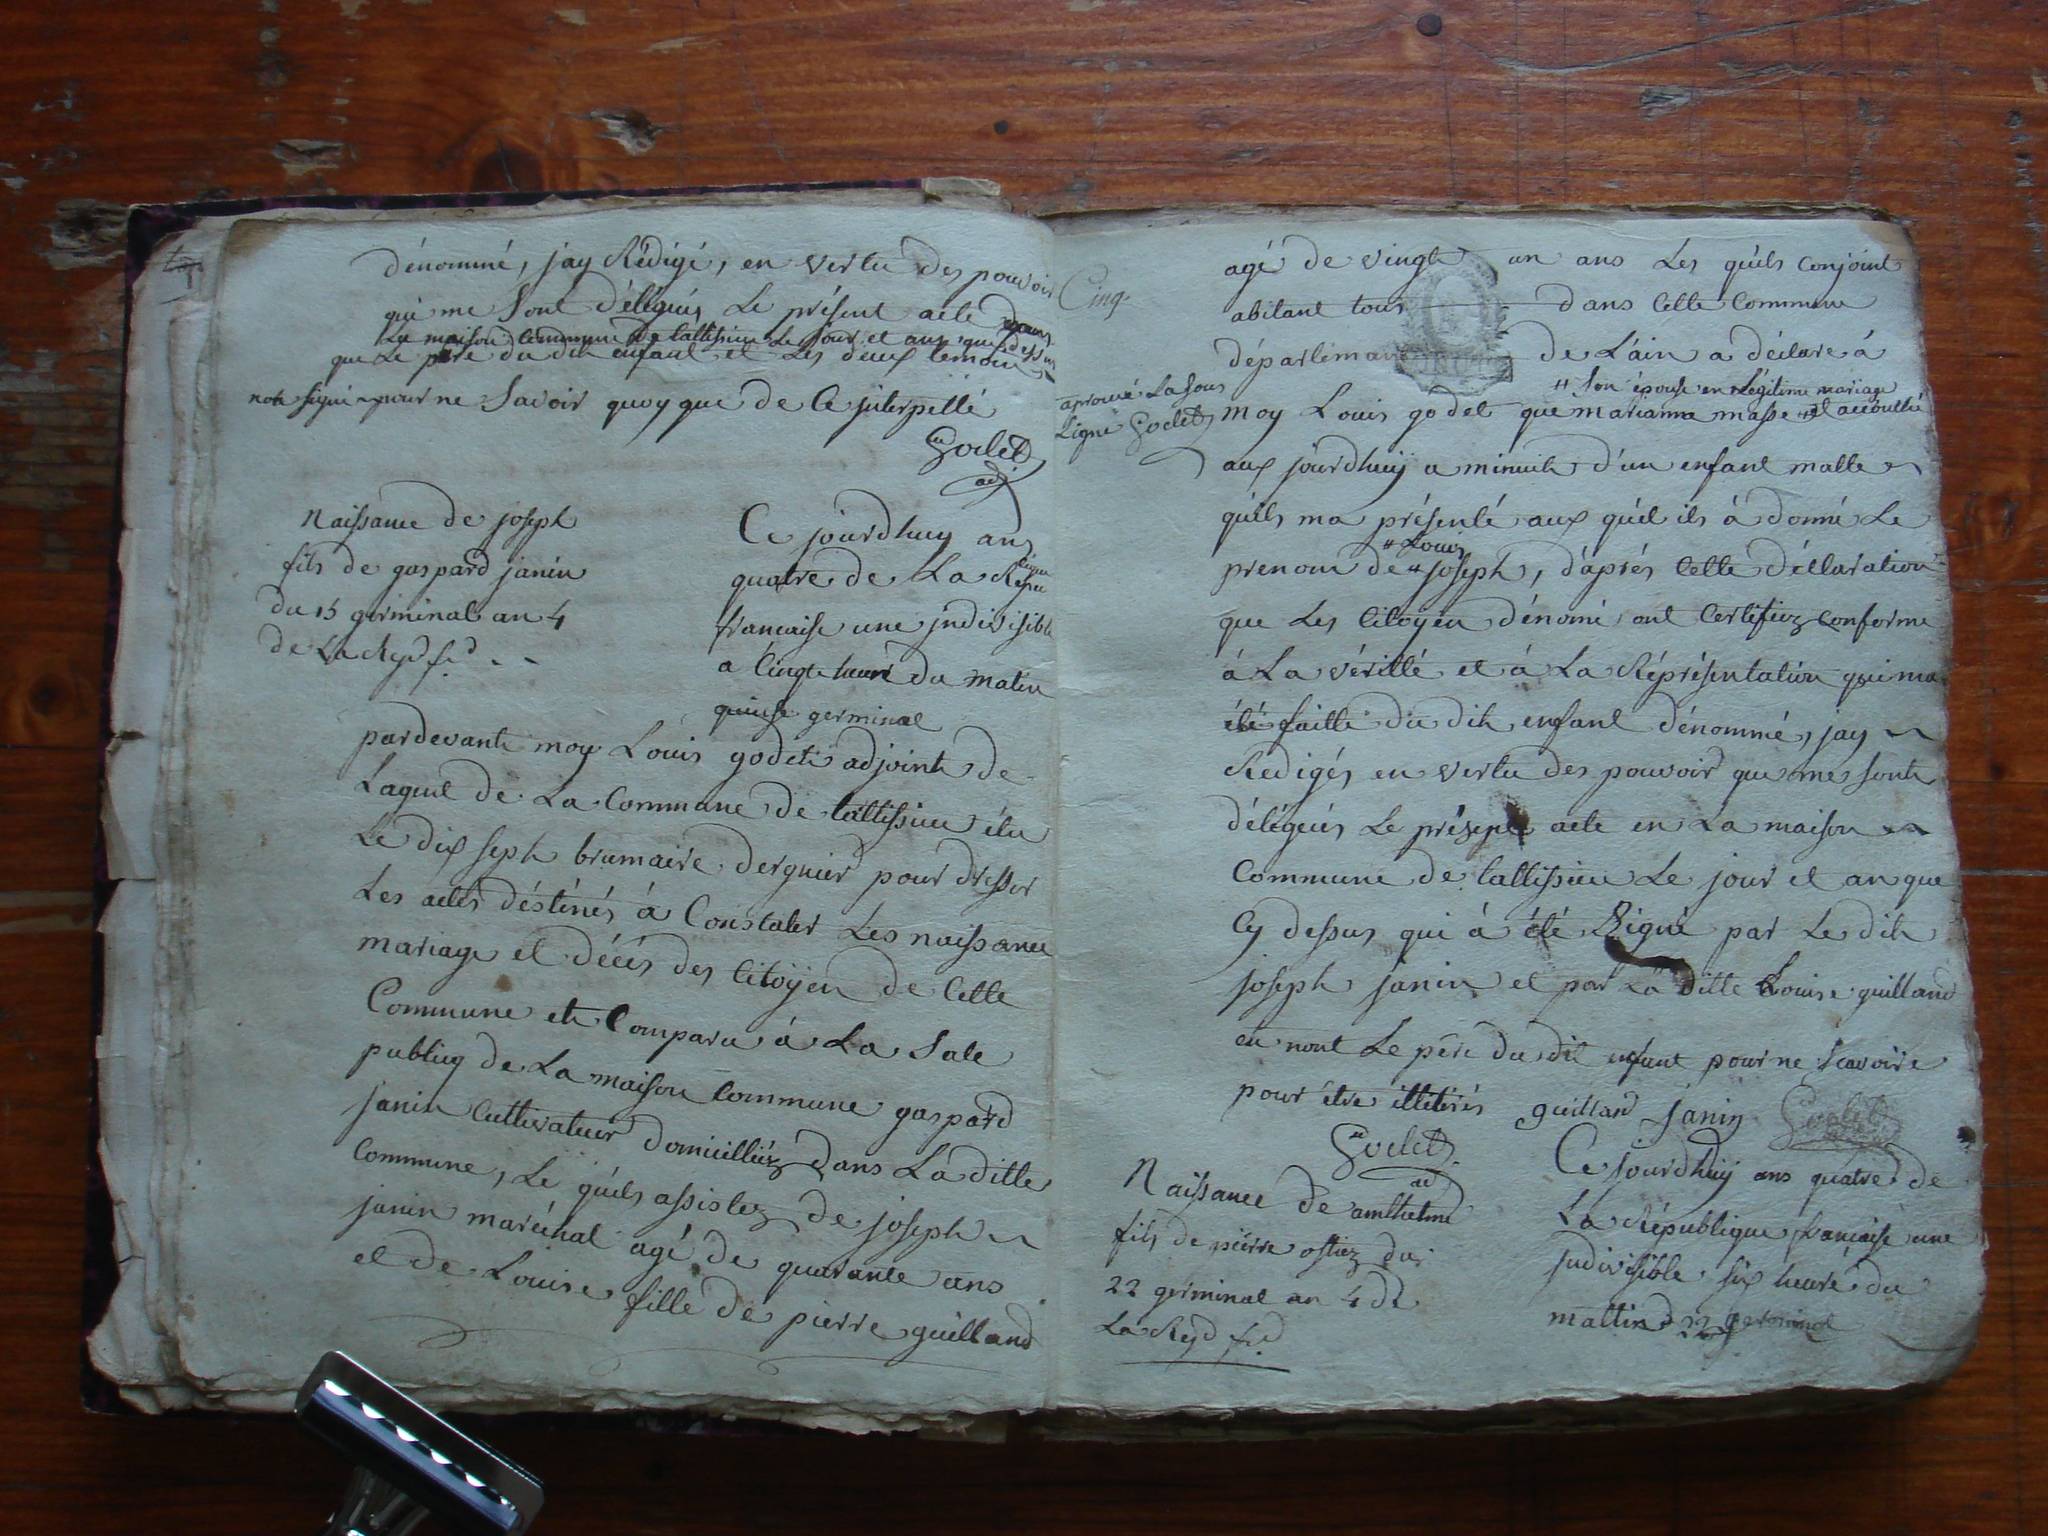 dénommé, jay Rédigé, en vertu des pouvoir
qui me Sont déléguéz Le présent acte dans
La maison commune de tallissieu Le jour et an que dessus
que Le père du dit enfant et Les deux temoin
non signé pour ne Savoir quoy que de Ce jnterpellé
Godet
adj
naissance de joseph
fils de gaspard janin
du 15 germinal an 4
de La Rep fr.
Ce jourdhuy ans
quatre de La Republique
francaise une jndivisible
a Cinqt heure du matin
quinse germinal
pardevant moy Louis godet adjoint de
Laquel de La Commune de tallissieu élu
Le dix sept brumaire dergnier pour dresser
Les actes déstinés à Constater Les naissance
mariage et décés des Citoyen de Cette
Commune et Comparu à La Sale
publiq de La maison Commune gaspard
janin Cultivateur domicilliéz dans La ditte
Commune, Le quels assistez de joseph
janin maréchal agé de quarante ans
et de Louise fille de pierre guilland
Cinq.
agé de vingt un ans Les quels Conjoint
abitant tous dans Cette Commune
départeman de L'ain a déclaré à
Son épouse en Légitime mariage
aprouvé La sous
Ligne Godet
moy Louis godet que marianne masse est accouchée
aux jourdhuy a minuit d'un enfant malle
quils ma présenté aux quel ils à donné Le
Louis
prenom de joseph, d'aprés Cette déclaration
que Les Citoyen dénomé ont Certifiez Conforme
à La véritté et à La Réprésentation qui ma
été faitte du dit enfant dénommé, jay
Redigés en vertu des pouvoir que me sont
délégués Le présent acte en La maison
Commune de tallissieu Le jour et an que
Cy dessus qui à été Signé par Le dit
joseph janin et par La ditte Louise guilland
et nont Le père du dit enfant pour ne scavoire
pour étre illitérés guilland janin Godet
Godet
adj
Naissance de anthelme
fils de pierre ostiez du
22 germinal an 4 de
La Rep fr.
Ce jourdhuy ans quatre de
La République francaise une
jndivisible six heure du
mattin 22 germinal